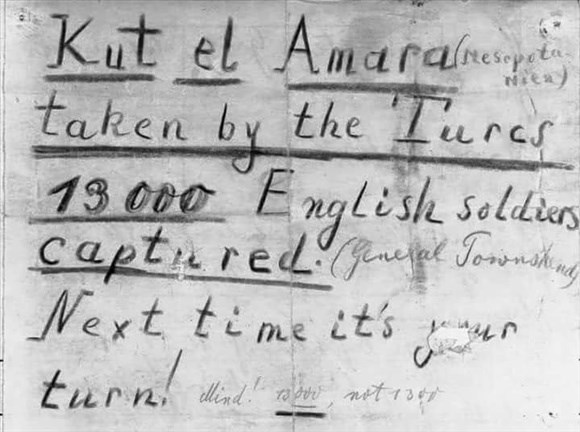 Kut el Amara (Mesopotamien)
taken by the Turcs
13000 English soldiers
captured. (General Townshend)
Next time it's your
turn! Mind! 13000, not 1300